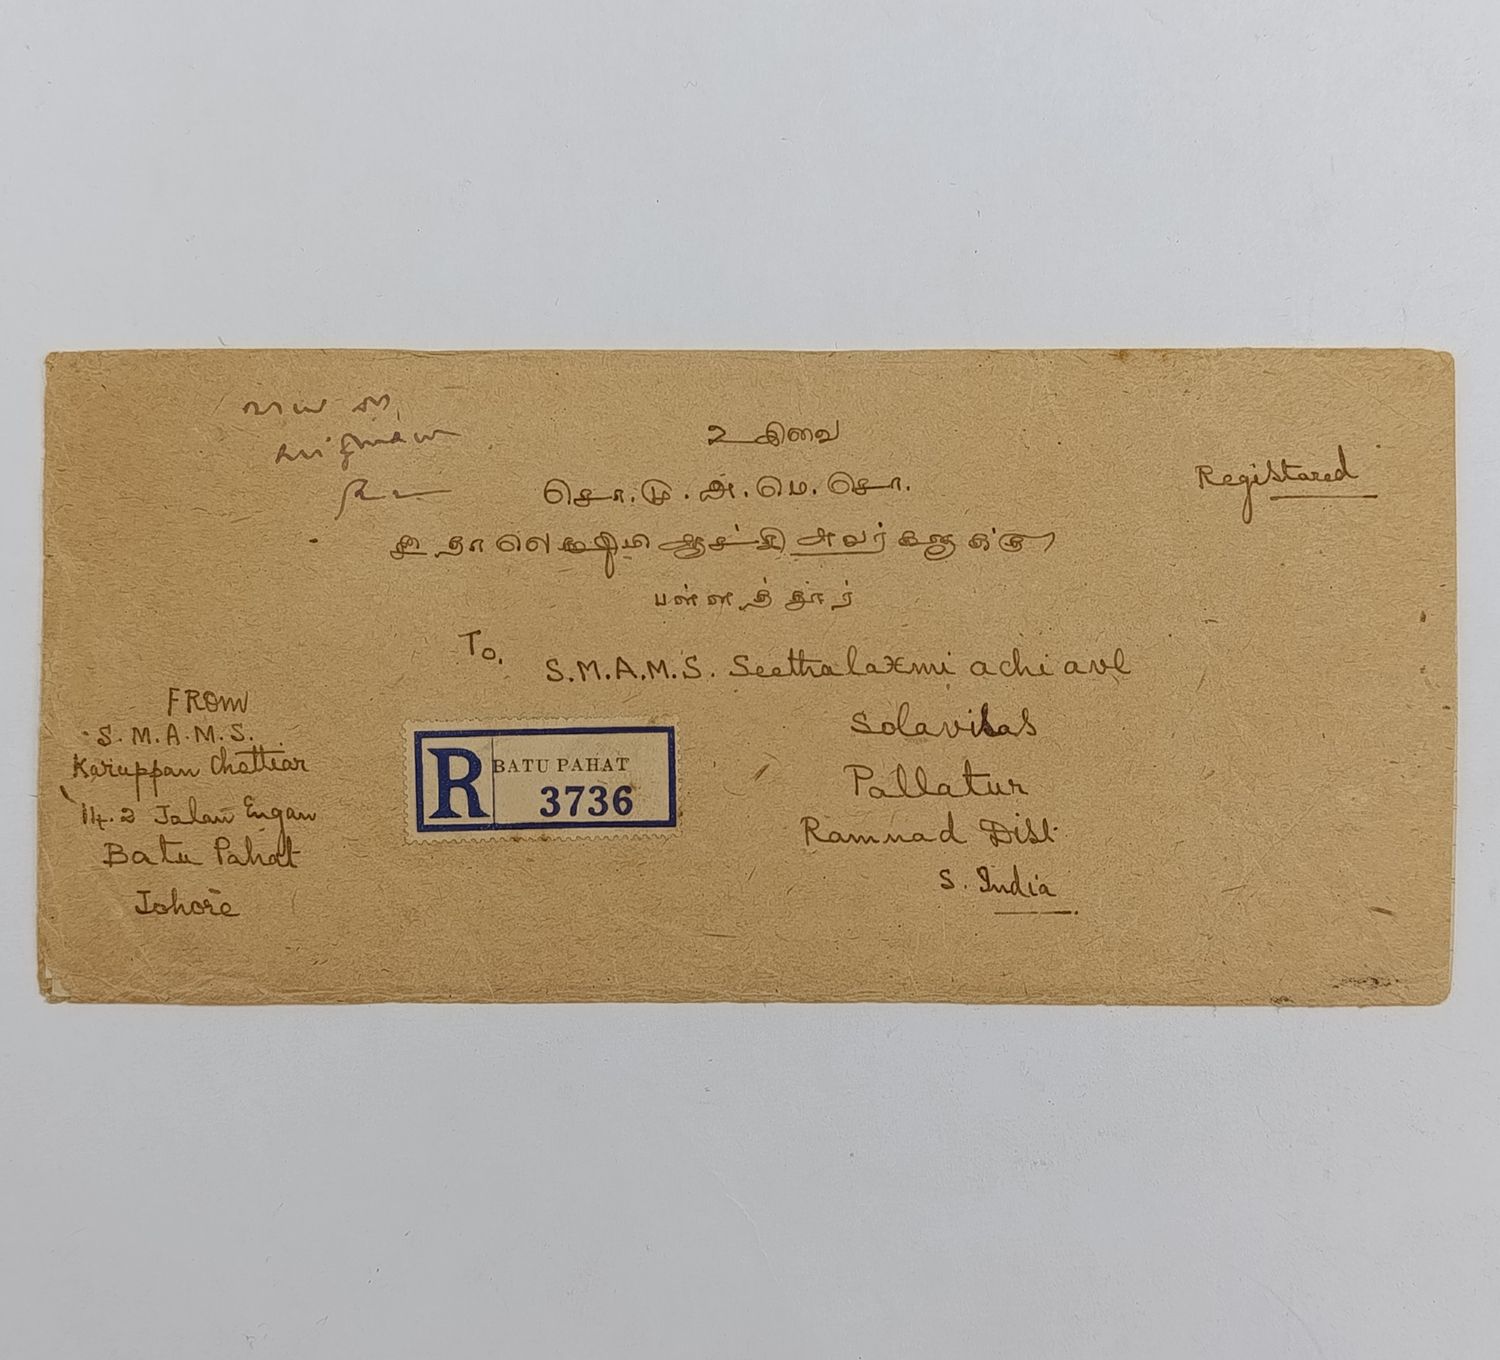 உ சிவை
சொ.மு.அ.மெ.சொ.
சீதாலெட்சுமி ஆச்சி அவர்களுக்கு
பள்ளத்தூர்
Registared
To,
S.M.A.M.S. Seethalaxmi achi avl
Solavilas
Pallatur
Ramnad Dist
S. India
FROM
S.M.A.M.S.
Karuppan Chettiar
14.2 Jalan Engan
Batu Pahat
Johore
R BATU PAHAT
3736